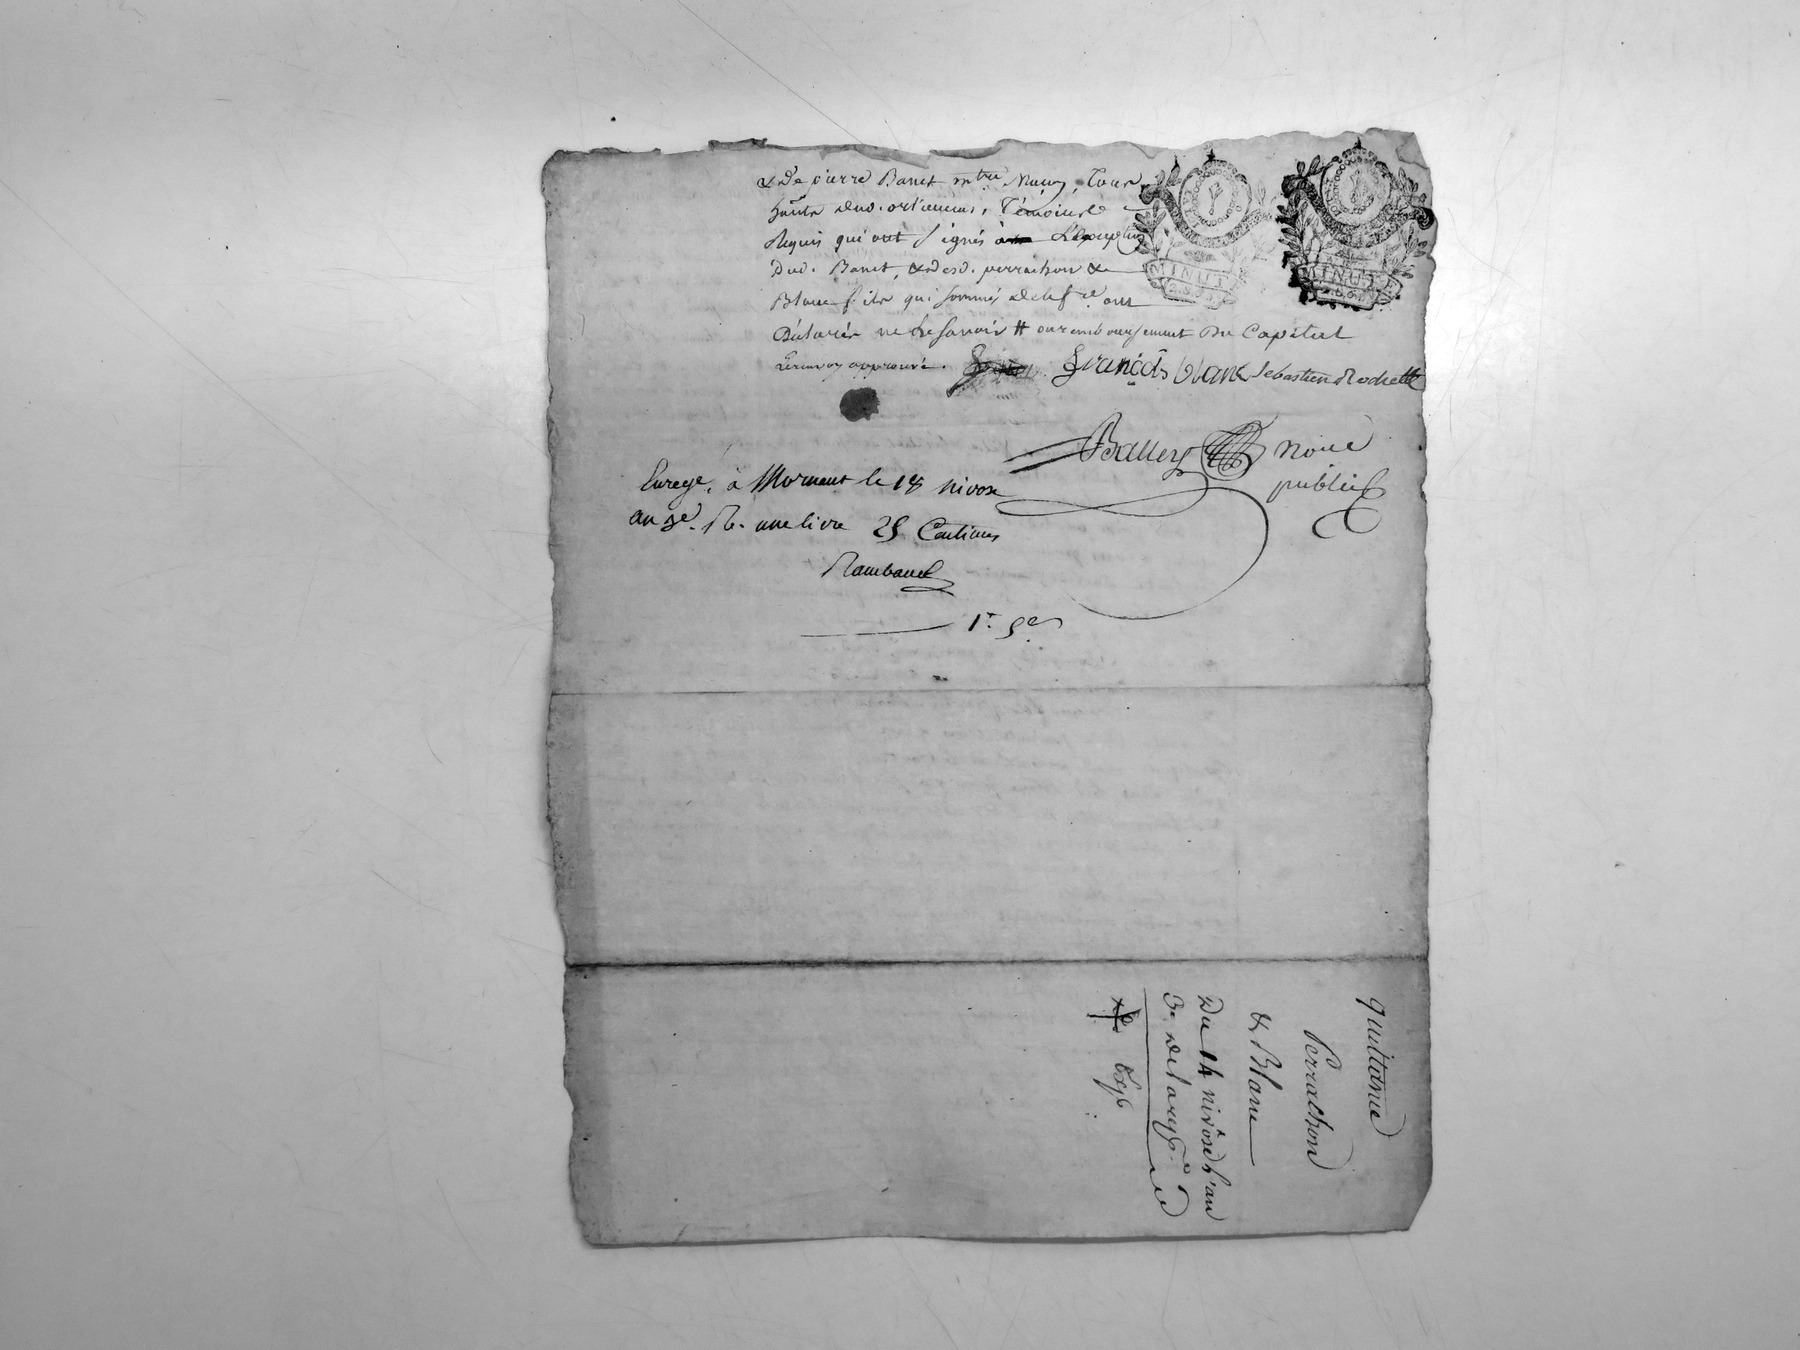 & de pierre Banet mtre Maçon, Tous
hants dud. orlienas, Témoins
Requis qui ont signés Lexception
Dud. Banet, & desd. perrachon &
Blanc fils qui sommés de le fre ont
Déclarés ne le savoir # ou remboursement Du Capital
Renvoy approuvé. françois blanc Sebastien Rochette
Balley Noire
public
Enregé. à Mornant le 18 nivose
an 3e. R. une livre 25 Centimes
Rambaud
1r. 5e
MINUTE
MINUTE
quittance
Perrachon
& Blanc
Du 14 nivôse l'an
3e. de la rep.
Exp